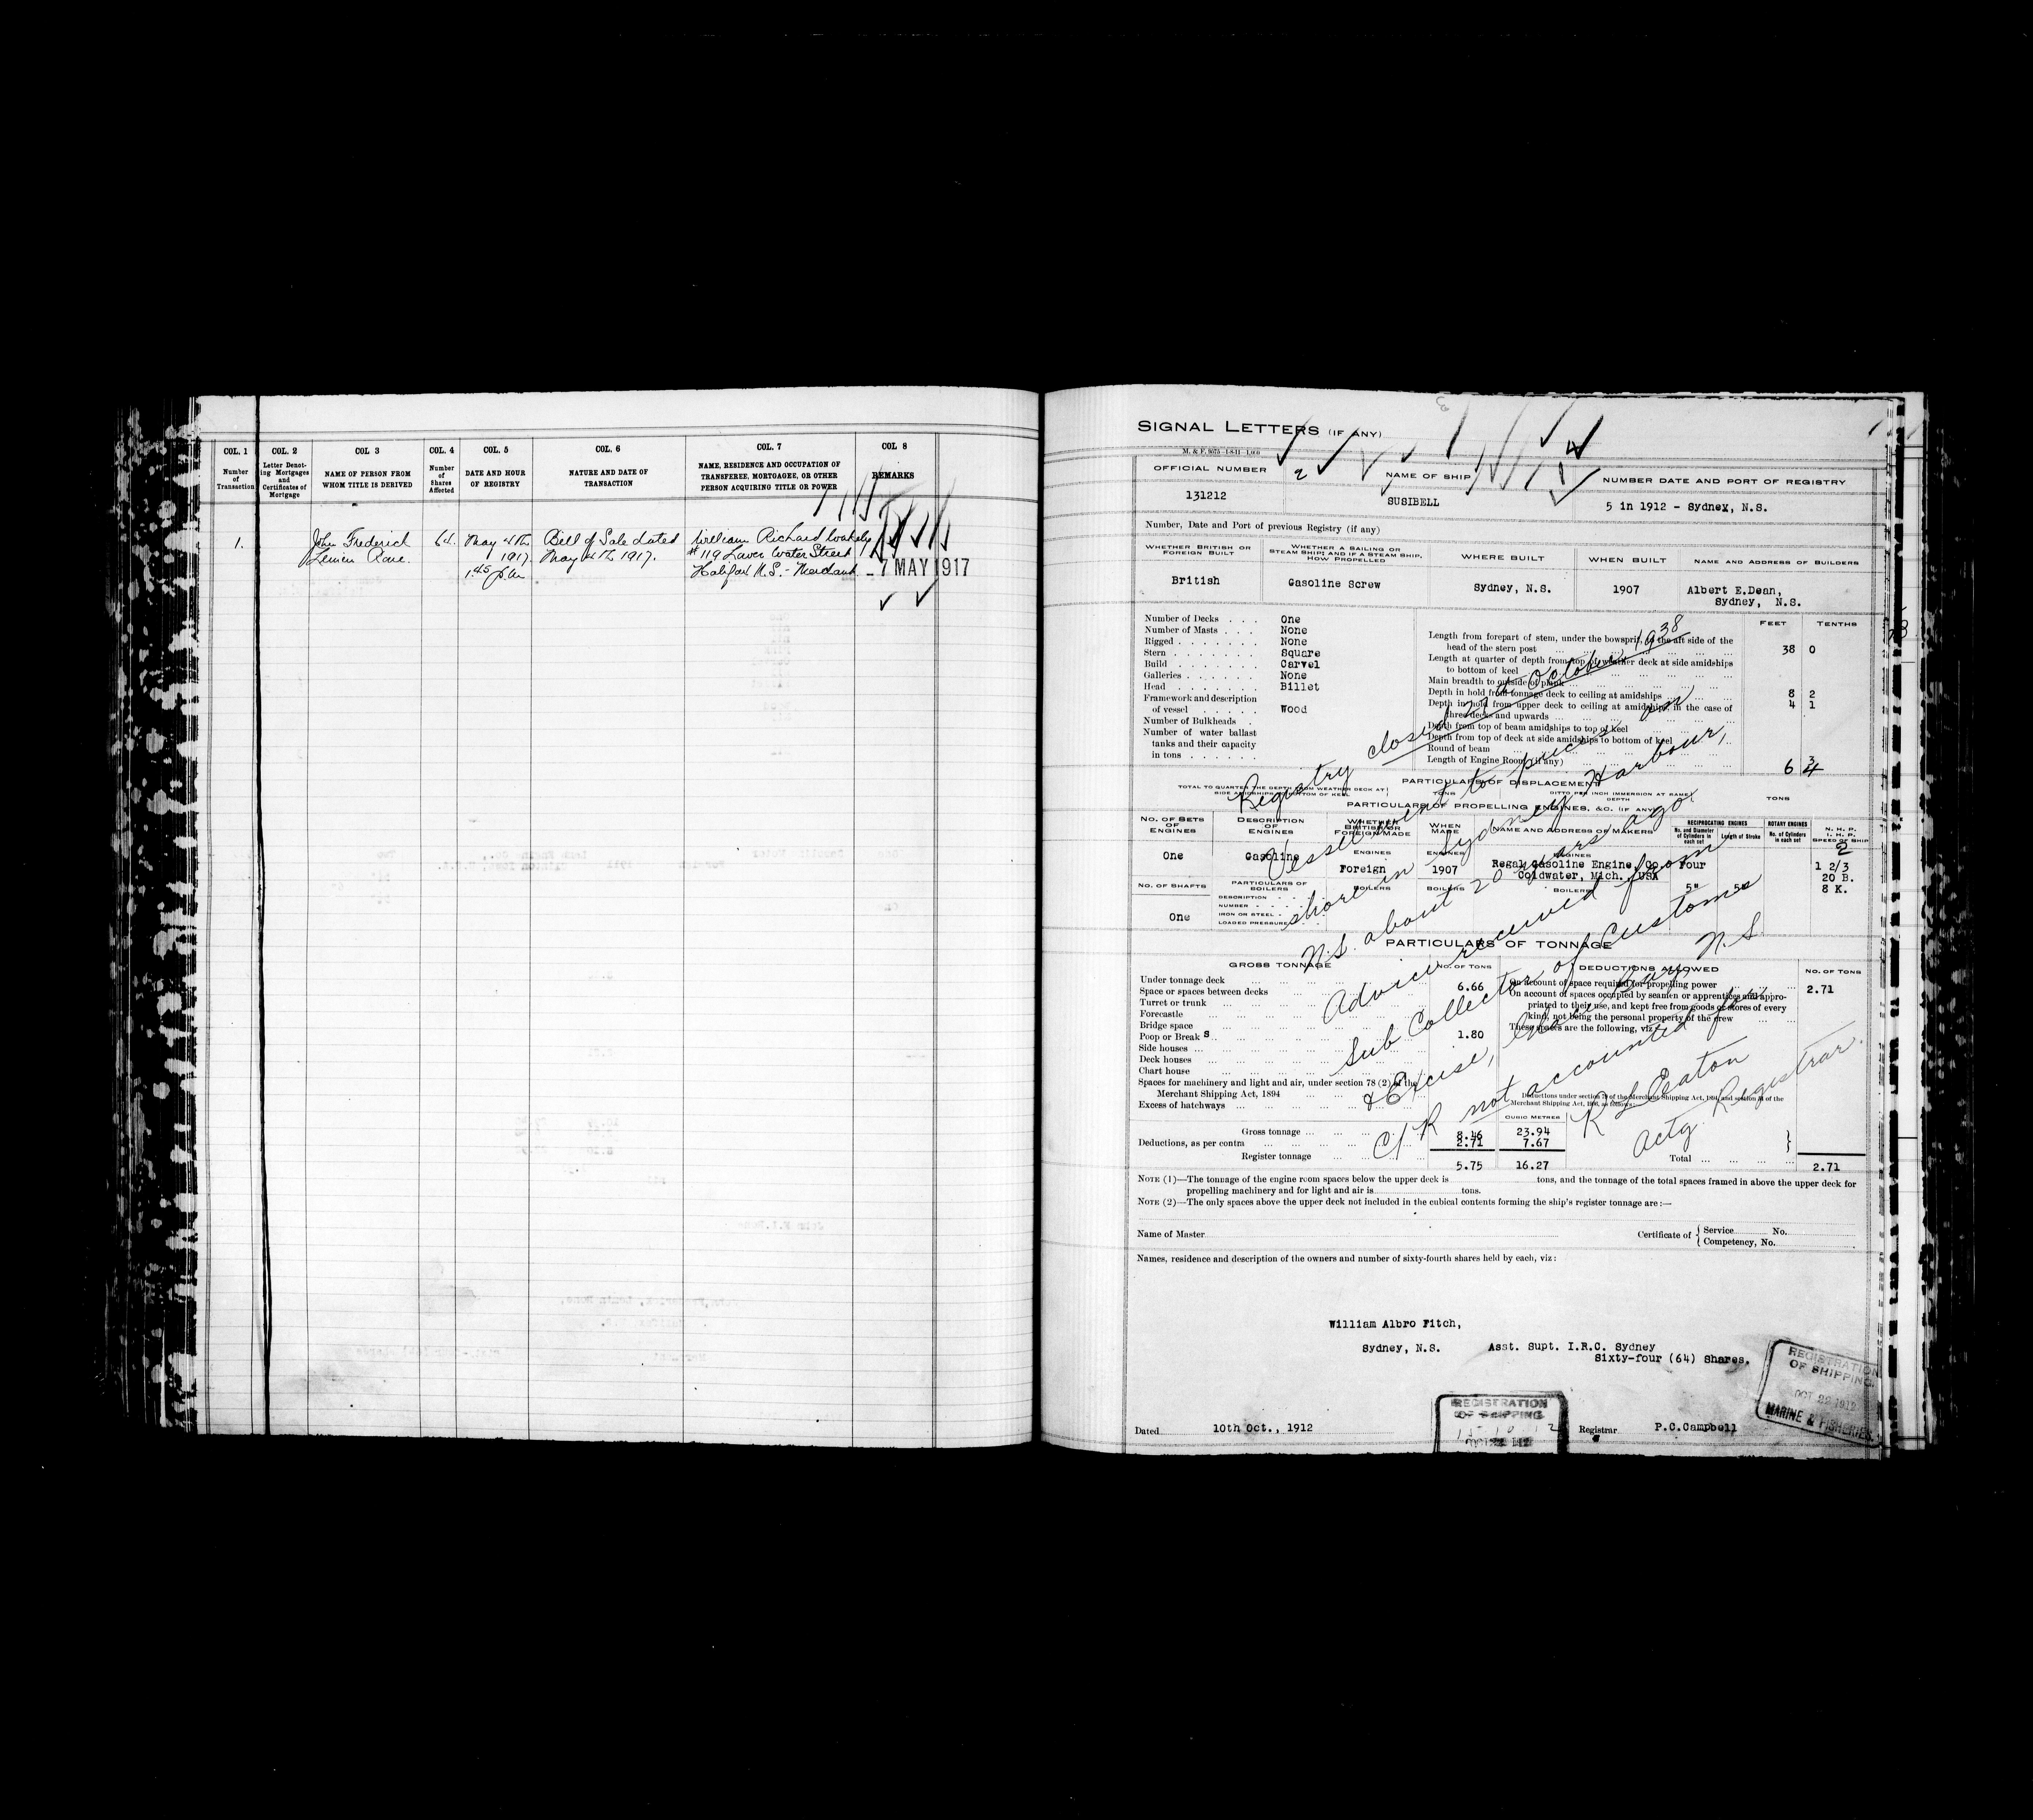 COL. 1
Number of Transaction
COL. 2
Letter Denoting Mortgages and Certificates of Mortgage
COL. 3
NAME OF PERSON FROM WHOM TITLE IS DERIVED
COL. 4
Number of Shares Affected
COL. 5
DATE AND HOUR OF REGISTRY
COL. 6
NATURE AND DATE OF TRANSACTION
COL. 7
NAME, RESIDENCE AND OCCUPATION OF TRANSFEREE, MORTGAGEE, OR OTHER PERSON ACQUIRING TITLE OR POWER
COL. 8
REMARKS
1.
John Frederick
64.
May 4th
1917
1.45 p.m
Bill of Sale dated
May 4th 1917.
William Richard
#119 Lower Water Street
Halifax N.S. - Merchant
- 7 MAY 1917
SIGNAL LETTERS (IF ANY)
OFFICIAL NUMBER
131212
NAME OF SHIP
SUSIBELL
NUMBER DATE AND PORT OF REGISTRY
5 in 1912 - Sydney, N.S.
Number, Date and Port of previous Registry (if any)
WHETHER BRITISH OR FOREIGN BUILT
British
WHETHER A SAILING OR STEAM SHIP; AND IF A STEAM SHIP, HOW PROPELLED
Gasoline Screw
WHERE BUILT
Sydney, N.S.
WHEN BUILT
1907
NAME AND ADDRESS OF BUILDERS
Albert E.Dean,
Sydney, N.S.
Number of Decks . . . One
Number of Masts . . . None
Rigged . . . None
Stern . . . Square
Build . . . Carvel
Galleries . . . None
Head . . . Billet
Framework and description
of vessel . . . Wood
Number of Bulkheads .
Number of water ballast
tanks and their capacity
in tons . . .
FEET TENTHS
Length from forepart of stem, under the bowsprit, to the aft side of the
head of the stern post 38 0
Length at quarter of depth from top of weather deck at side amidships
to bottom of keel
Main breadth to outside of plank 8 2
Depth in hold from tonnage deck to ceiling at amidships 4 1
Depth in hold from upper deck to ceiling at amidships, in the case of
three decks and upwards
Depth from top of beam amidships to top of keel
Depth from top of deck at side amidships to bottom of keel
Round of beam
Length of Engine Room (if any) 6
Registry closed 24th October 1938
Vessel went to pieces on
shore in Sydney Harbour,
N.S. about 20 years ago.
Advice received from
Sub Collector of Customs
& Excise, Glace Bay, N.S.
C/R not accounted for
R L Eaton
Actg. Registrar.
PARTICULARS OF DISPLACEMENT
TOTAL TO QUARTER THE DEPTH FROM WEATHER DECK AT SIDE AMIDSHIPS TO BOTTOM OF KEEL
TONS
DITTO PER INCH IMMERSION AT SAME DEPTH
TONS
PARTICULARS OF PROPELLING ENGINES, &C. (IF ANY)
NO. OF SETS OF ENGINES
One
DESCRIPTION OF ENGINES
Gasoline
WHETHER BRITISH OR FOREIGN MADE
ENGINES
Foreign
WHEN MADE
ENGINES
1907
NAME AND ADDRESS OF MAKERS
ENGINES
Regal Gasoline Engine, Co.
Coldwater, Mich., USA
RECIPROCATING ENGINES
No. and Diameter of Cylinders in each set
Length of Stroke
Four
5" 5"
ROTARY ENGINES
No. of Cylinders in each set
N. H. P.
I. H. P.
SPEED OF SHIP
2
1 2/3
20 B.
8 K.
NO. OF SHAFTS
One
PARTICULARS OF BOILERS
DESCRIPTION
NUMBER
IRON OR STEEL
LOADED PRESSURE
BOILERS
BOILERS
BOILERS
PARTICULARS OF TONNAGE
GROSS TONNAGE
NO. OF TONS
Under tonnage deck 6.66
Space or spaces between decks
Turret or trunk
Forecastle
Bridge space
Poop or Break s 1.80
Side houses
Deck houses
Chart house
Spaces for machinery and light and air, under section 78 (2) of the
Merchant Shipping Act, 1894
Excess of hatchways
CUBIC METRES
Gross tonnage 8.46 23.94
Deductions, as per contra 2.71 7.67
Register tonnage 5.75 16.27
DEDUCTIONS ALLOWED
NO. OF TONS
On account of space required for propelling power 2.71
On account of spaces occupied by seamen or apprentices and appro-
priated to their use, and kept free from goods or stores of every
kind, not being the personal property of the crew
These spaces are the following, viz:
Total 2.71
NOTE (1)—The tonnage of the engine room spaces below the upper deck is tons, and the tonnage of the total spaces framed in above the upper deck for
propelling machinery and for light and air is tons.
NOTE (2)—The only spaces above the upper deck not included in the cubical contents forming the ship's register tonnage are:—
Name of Master
Certificate of { Service No.
Competency, No.
Names, residence and description of the owners and number of sixty-fourth shares held by each, viz:
William Albro Fitch,
Sydney, N.S. Asst. Supt. I.R.C. Sydney
Sixty-four (64) Shares.
REGISTRATION
OF SHIPPING
OCT 22 1912
MARINE & FISHERIES
REGISTRATION
OF SHIPPING
Dated 10th Oct., 1912
Registrar P.C.Campbell